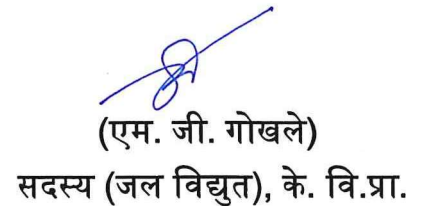 (एम. जी. गोखले)
सदस्य (जल विद्युत), के. वि.प्रा.